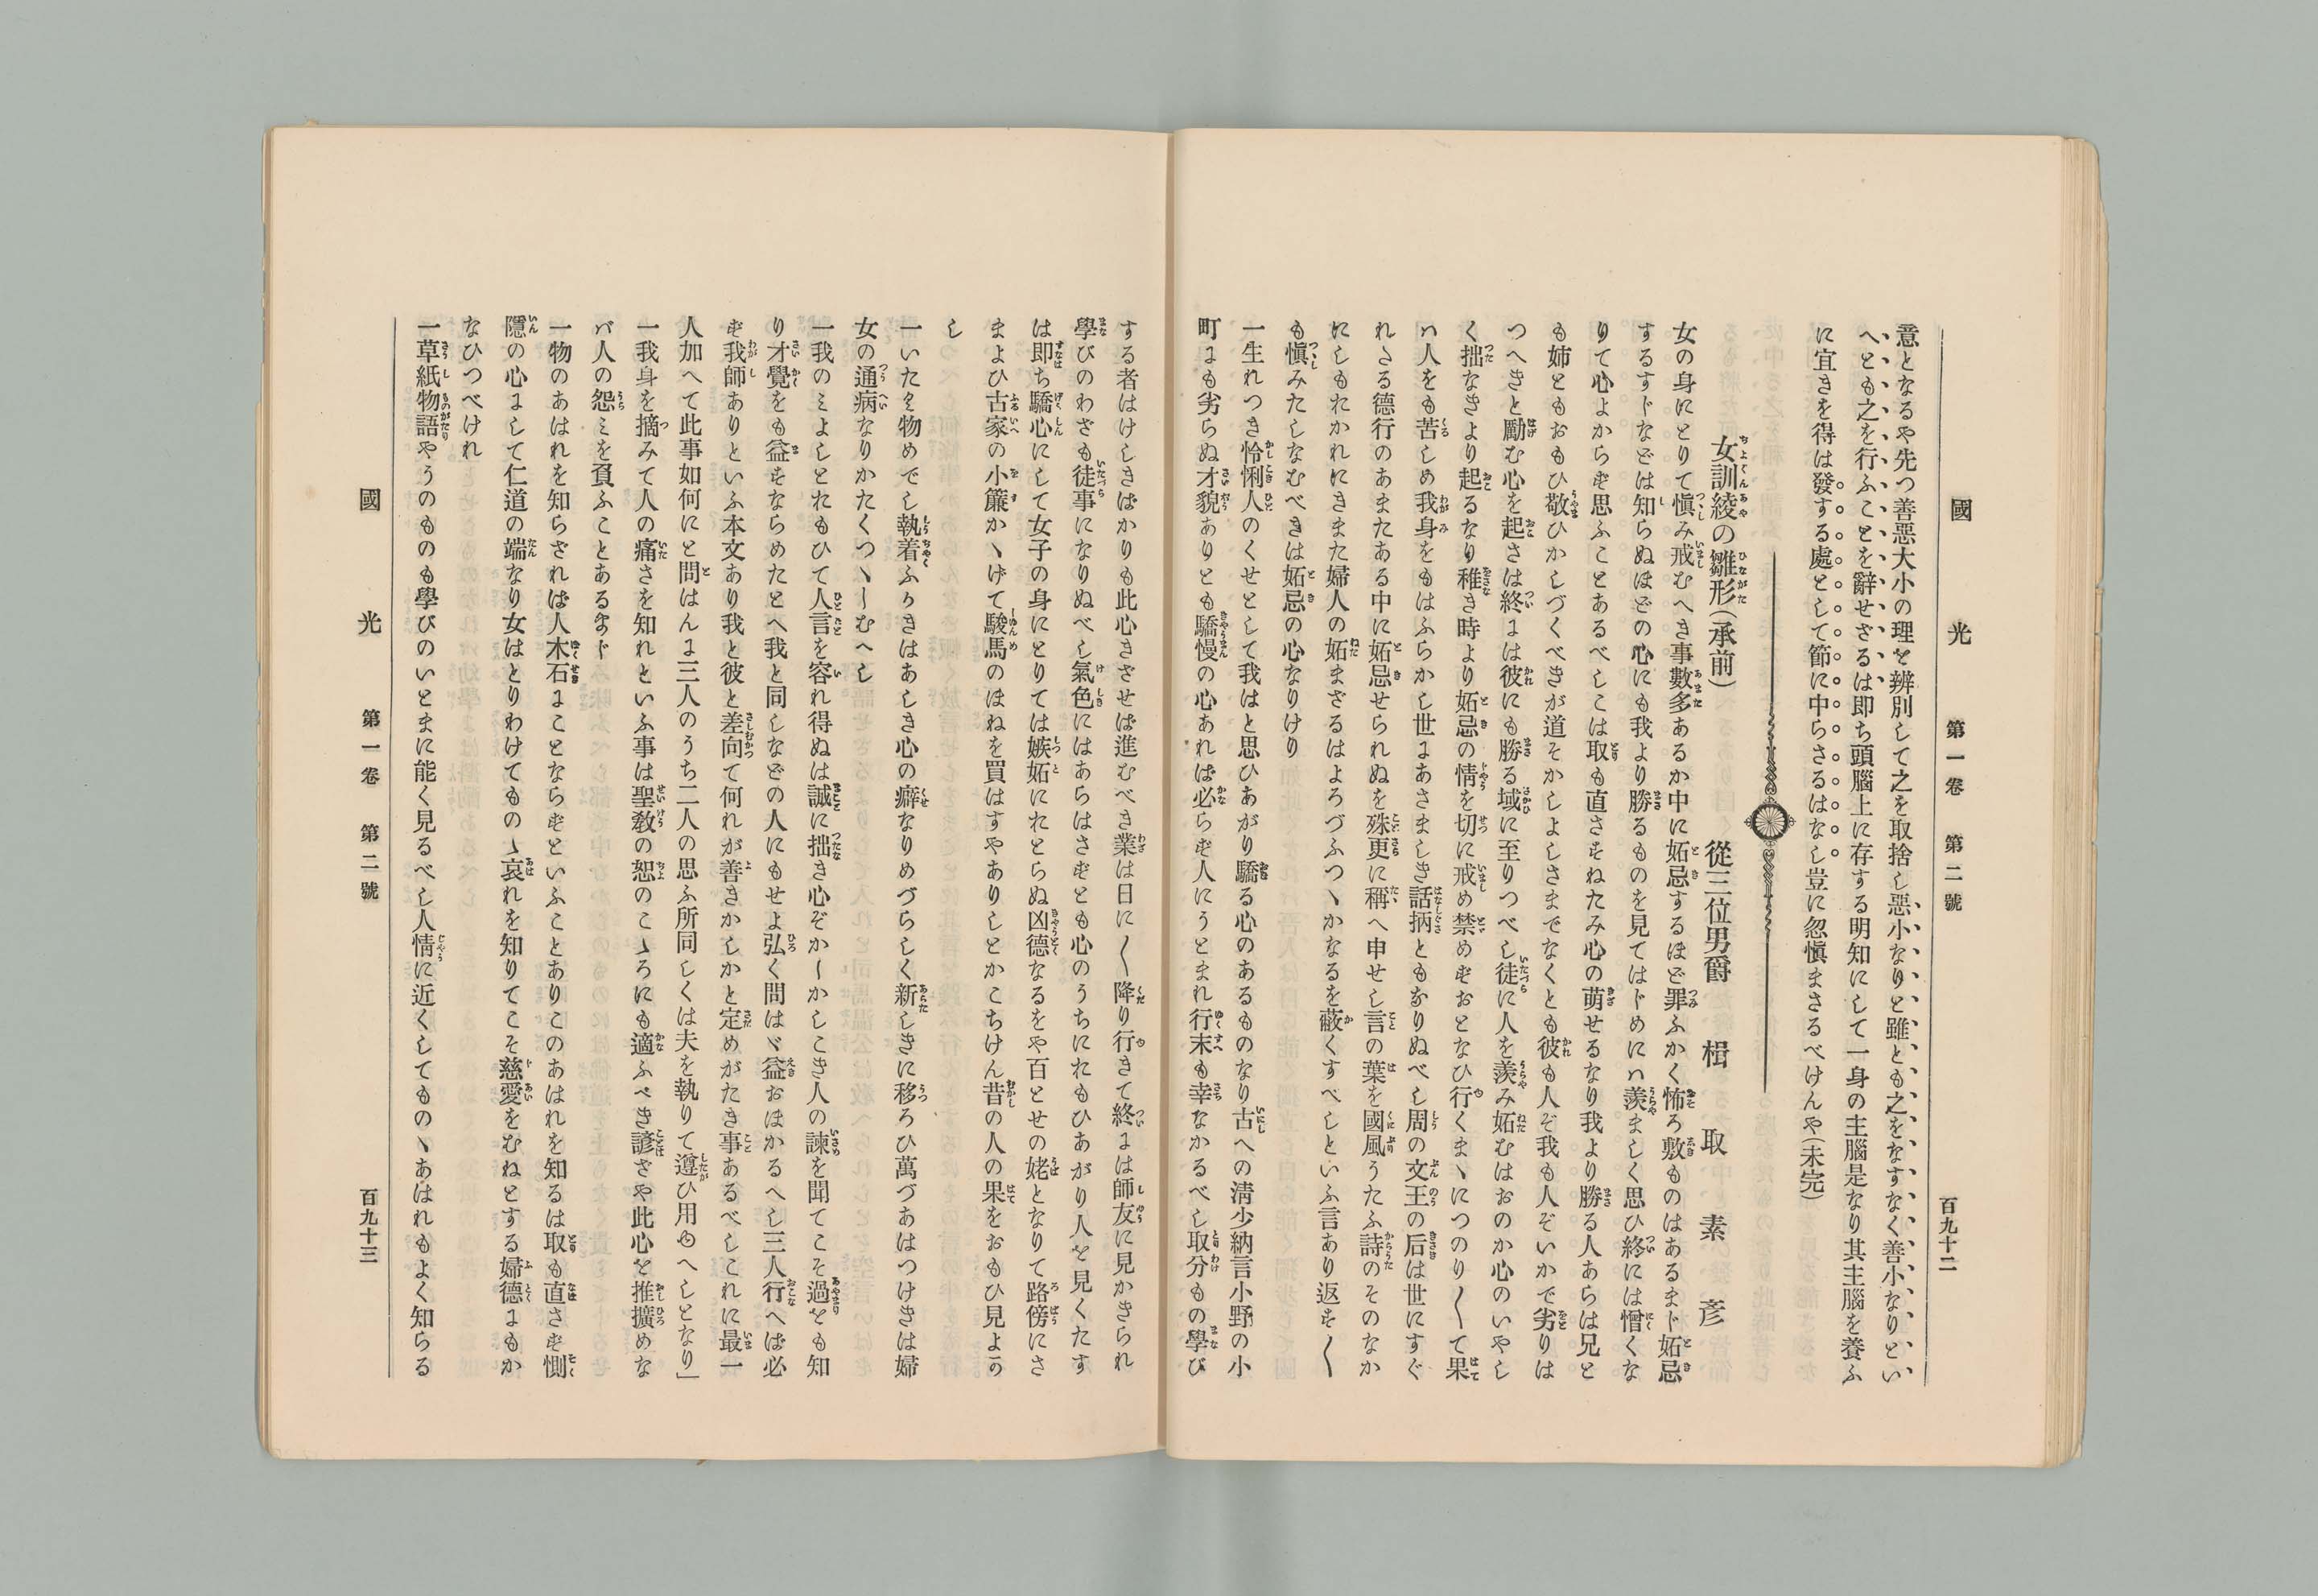 國光 第一卷 第二號 百九十二
意となるや先つ善惡大小の理を辨別して之を取捨し惡小なりと雖とも之をなすなく善小なりとい
へとも之を行ふことを辭せざるは即ち頭腦上に存する明知にして一身の主腦是なり其主腦を養ふ
に宜きを得は發する處として節に中らさるはなし豈に忽愼まさるべけんや(未完)
女訓綾の雛形(承前) 從三位男爵 楫取素彦
女の身にとりて愼み戒むへき事數多あるか中に妬忌するほど罪ふかく怖ろ敷ものはあるまじ妬忌
するすじなどは知らぬほどの心にも我より勝るものを見てはじめにハ羨ましく思ひ終には憎くな
りて心よからず思ふことあるべしこは取も直さずねたみ心の萌せるなり我より勝る人あらは兄と
も姉ともおもひ敬ひかしづくべきが道そかしよしさまでなくとも彼も人ぞ我も人ぞいかで劣りは
つへきと勵む心を起さは終には彼にも勝る域に至りつべし徒に人を羨み妬むはおのか心のいやし
く拙なきより起るなり稚き時より妬忌の情を切に戒め禁めずおとなひ行くまヽにつのり〱て果
ハ人をも苦しめ我身をもはふらかし世にあさましき話柄ともなりぬべし周の文王の后は世にすぐ
れたる德行のあまたある中に妬忌せられぬを殊更に稱へ申せし言の葉を國風うたふ詩のそのなか
にしもれかれにきまた婦人の妬まざるはよろづふつヽかなるを蔽くすべしといふ言あり返す〱
も愼みたしなむべきは妬忌の心なりけり
一生れつき怜悧人のくせとして我はと思ひあがり驕る心のあるものなり古への淸少納言小野の小
町にも劣らぬ才貌ありとも驕慢の心あれば必らず人にうとまれ行末も幸なかるべし取分もの學び
する者はけしきばかりも此心きざせば進むべき業は日に〱降り行きて終には師友に見かきられ
學びのわざも徒事になりぬべし氣色にはあらはさずとも心のうちにれもひあがり人を見くたす
は即ち驕心にして女子の身にとりては嫉妬にれとらぬ凶德なるをや百とせの姥となりて路傍にさ
まよひ古家の小簾かヽげて駿馬のほねを買はすやありしとかこちけん昔の人の果をおもひ見よか
し
一いたく物めでし執着ふかきはあしき心の癖なりめづらしく新しきに移ろひ萬づあはつけきは婦
女の通病なりかたくつヽしむへし
一我のミよしとれもひて人言を容れ得ぬは誠に拙き心ぞかしかしこき人の諫を聞てこそ過をも知
り才覺をも益すならめたとへ我と同しなどの人にもせよ弘く問はヾ益おほかるへし三人行へば必
ず我師ありといふ本文あり我と彼と差向て何れが善きかしかと定めがたき事あるべしこれに最一
人加へて此事如何にと問はんに三人のうち二人の思ふ所同しくは夫を執りて遵ひ用ゆへしとなり」
一我身を摘みて人の痛さを知れといふ事は聖敎の恕のこヽろにも適ふべき諺ざや此心を推擴めな
バ人の怨ミを負ふことあるまじ
一物のあはれを知らざれば人木石にことならずといふことありこのあはれを知るは取も直さず惻
隱の心にして仁道の端なり女はとりわけてものヽ哀れを知りてこそ慈愛をむねとする婦德にもか
なひつべけれ
一草紙物語やうのものも學びのいとまに能く見るべし人情に近くしてものヽあはれもよく知らる
國光 第一卷 第二號 百九十三